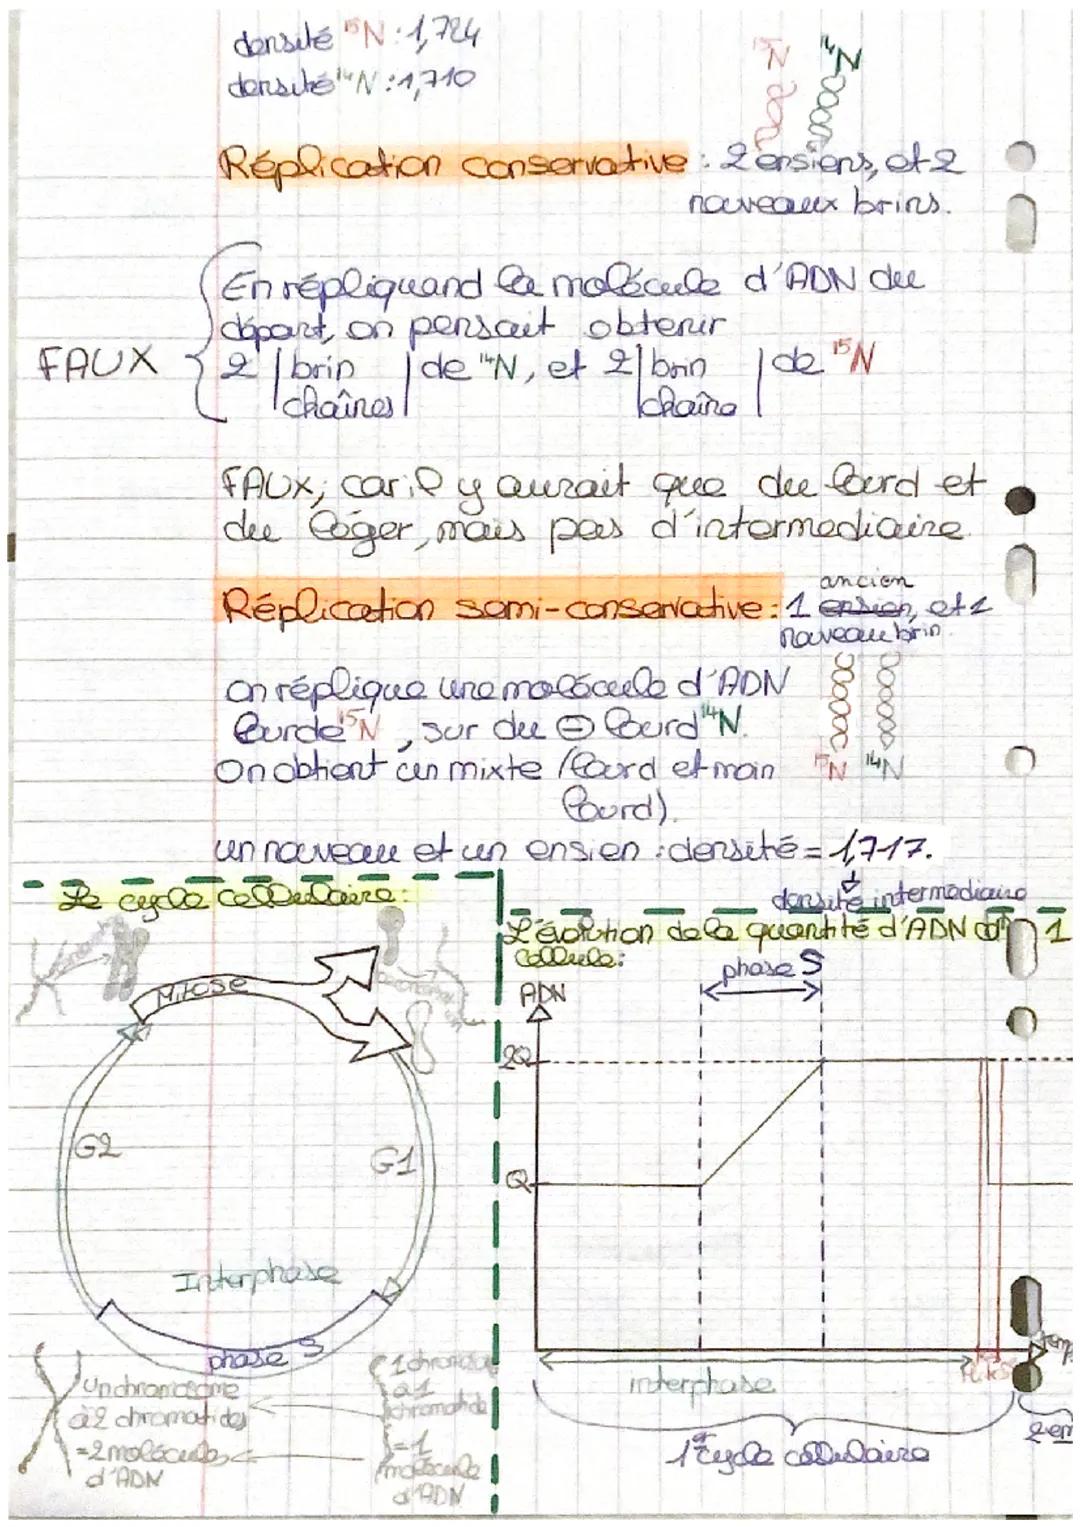 densité ¹⁵N : 1,724
densité ¹⁴N : 1,710
¹⁵N ¹⁴N
Réplication conservative : 2 ensiens, et 2
nouveaux brins.
En répliquand la molécule d'ADN du
départ, on pensait obtenir
FAUX
2 | brin | de ¹⁴N, et 2 | brin | de ¹⁵N
chaînes chaîne
FAUX, car il y aurait que du lourd et
du léger, mais pas d'intermediaire.
ancien
Réplication semi-conservative : 1 ensien, et 1
nouveau brin.
on réplique une molécule d'ADN
lourde ¹⁵N, sur du ⊖ lourd ¹⁴N.
¹⁵N ¹⁴N
On obtient un mixte (lourd et moin
lourd).
un nouveau et un ensien : densité = 1,717.
densité intermediaire
Le cycle cellulaire :
Mitose
G2
G1
Interphase
phase S
Un chromosome
à 2 chromatides
=2 molécules
d'ADN
à 1
chromatide
=1
molécule
d'ADN
L'évolution de la quantité d'ADN 1
cellule :
phase S
ADN
2Q
Q
interphase
1er cycle cellulaire